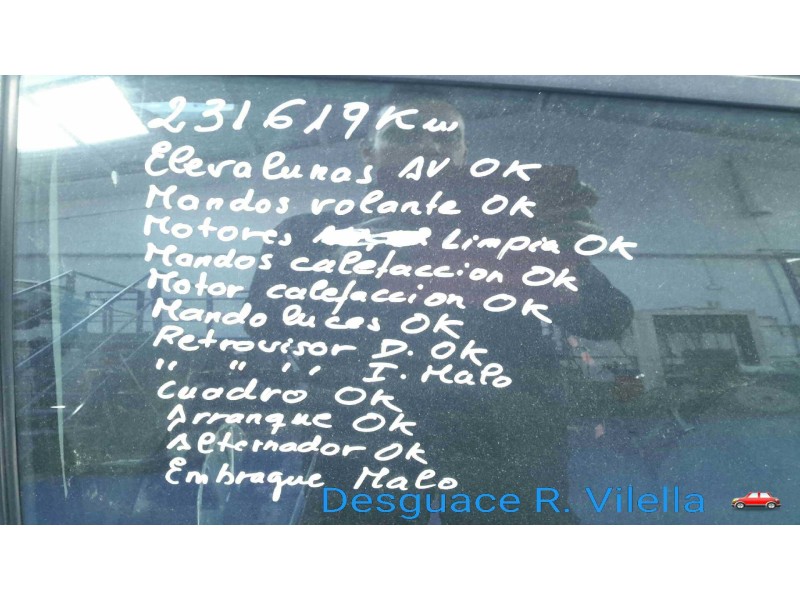 231619 Km
Elevalunas AV OK
Mandos volante OK
Motores Limpia OK
Mandos calefaccion OK
Motor calefaccion OK
Mando luces OK
Retrovisor D. OK
" " " I. Malo
Cuadro OK
Arranque OK
Alternador OK
Embrague Malo
Desguace R. Vilella